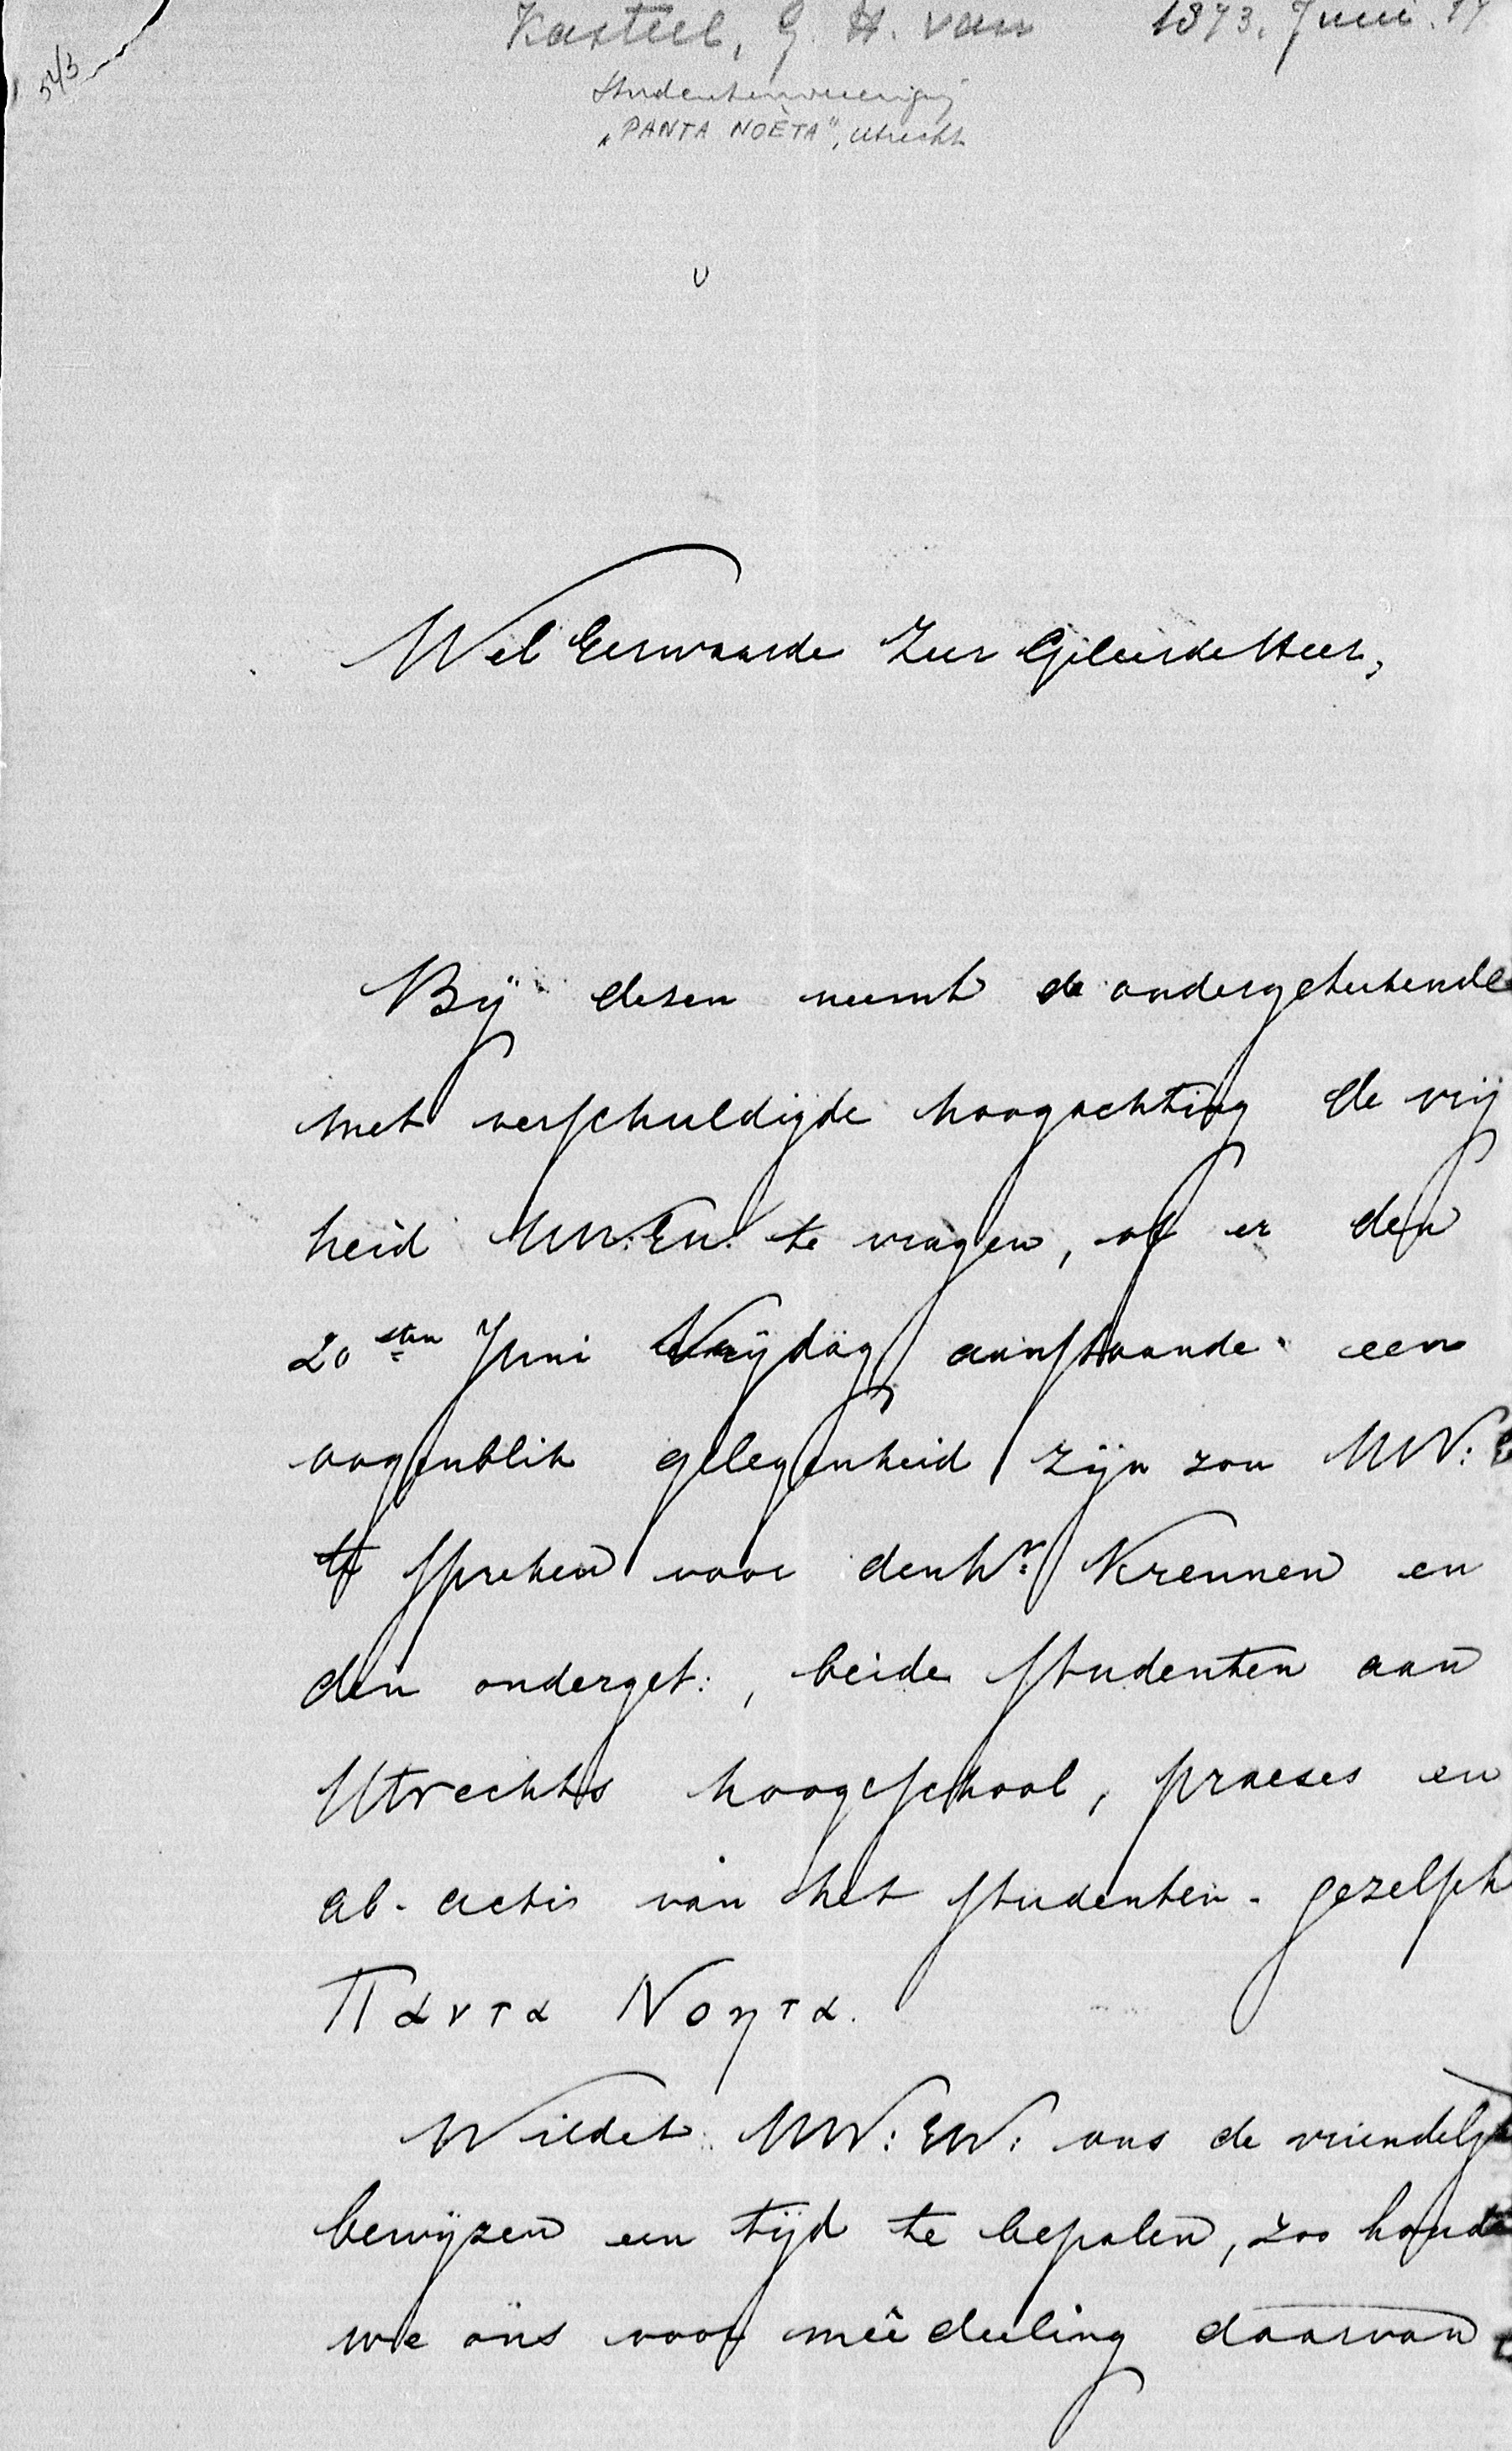 Kasteel, G. H. van 1873. Juni. 17
Studentenvereeniging
„PANTA NOÈTA", Utrecht
Wel Eerwaarde Zeer Geleerde Heer,
Bij dezen neemt de ondergeteekende
met verschuldigde hoogachting de vrij
heid UW:EW: te vragen, of er den
20sten Juni Vrijdag aanstaande een
oogenblik gelegenheid zijn zou UW: E
te spreken voor den hr: Krennen en
den onderget:, beide studenten aan
Utrechts hoogeschool, praeses en
ab-actis van het studenten-gezelsch
Παντα Νοητα.
Wildet UW: EW: ons de vriendelijk
bewijzen een tijd te bepalen, zoo houde
we ons voor meêdeeling daarvan